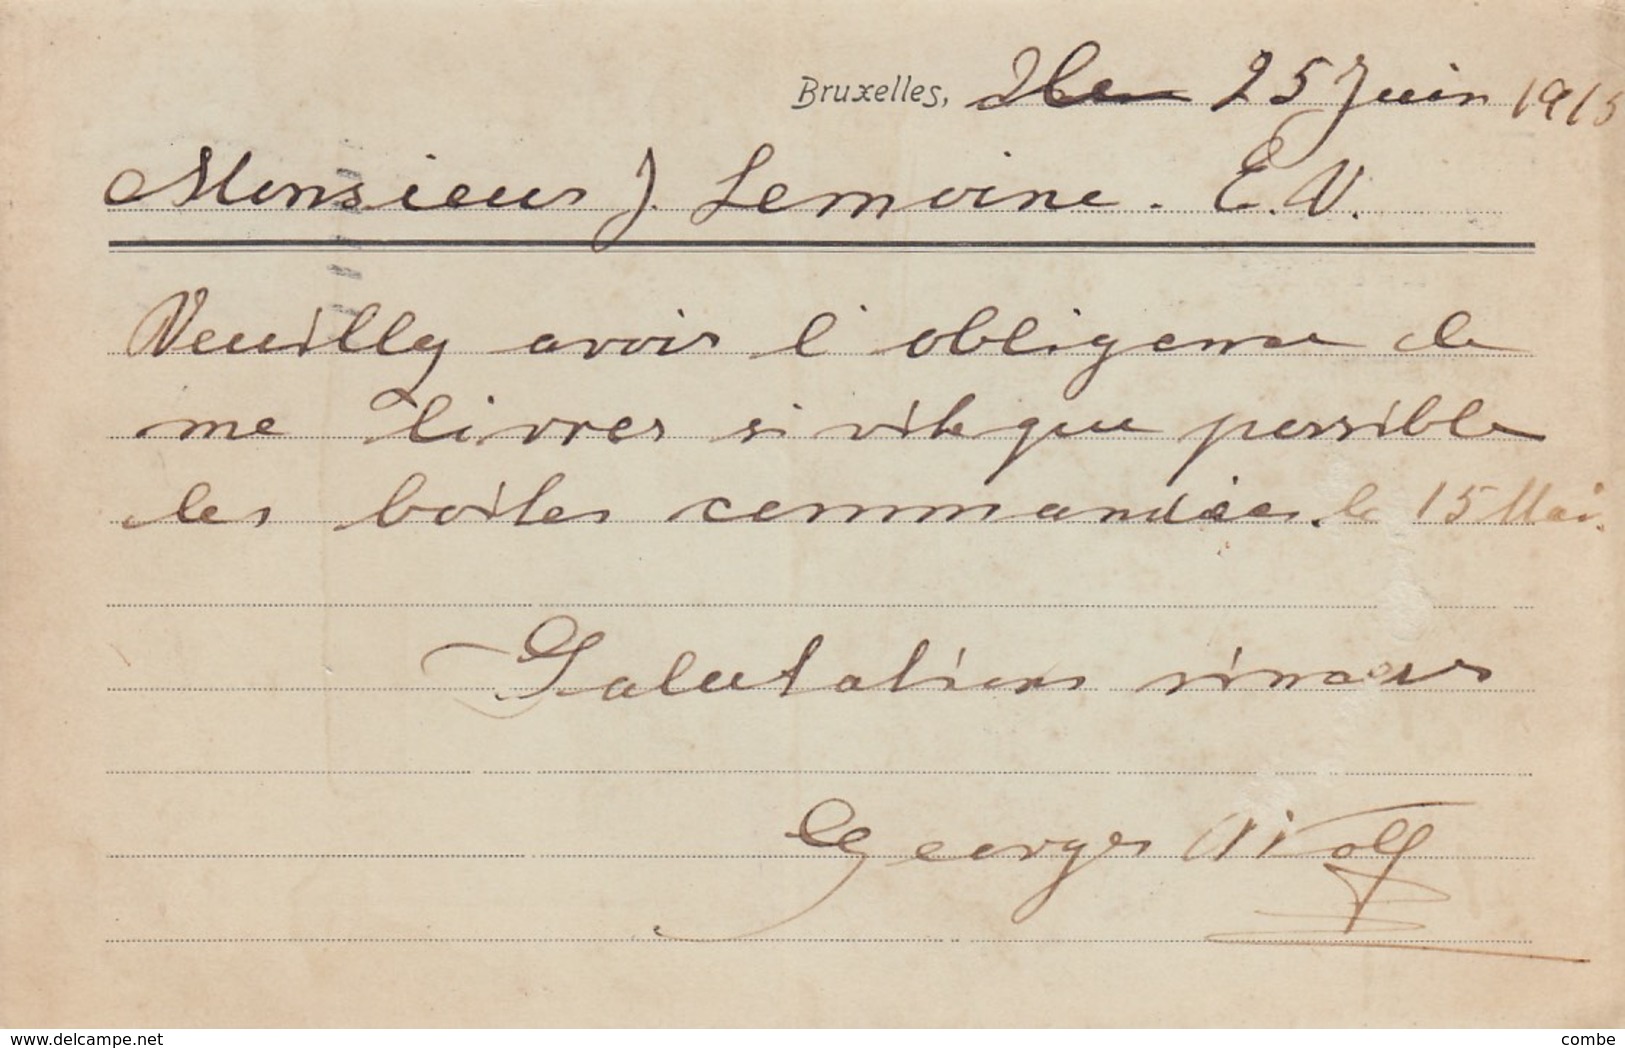 Bruxelles, 25 Juin 1915
Monsieur J. Lemoine. E.V.
Veuilly avoir l'obligeance de
me livrer si vite que possible
les boites commandées. le 15 Mai.
Salutations sincères
Georges
www.delcampe.net
combe